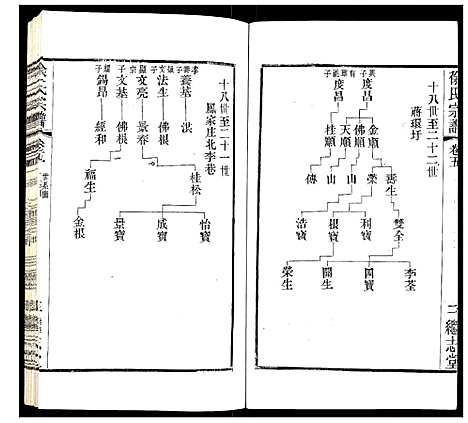 徐氏宗譜
卷五
二
繼志堂
十八世至二十二世
蔣環圩
度昌
度昌
金順
佛順
天順
桂順
壽生
榮
山
山
傳
雙全
利寶
根寶
浩寶
李荃
四寶
開生
榮生
十八世至二十一世
嚴家庄北李巷
養基
洪
法生
佛根
文亮
景春
文基
佛根
錫昌
經和
桂松
福生
怡寶
成寶
景寶
金根